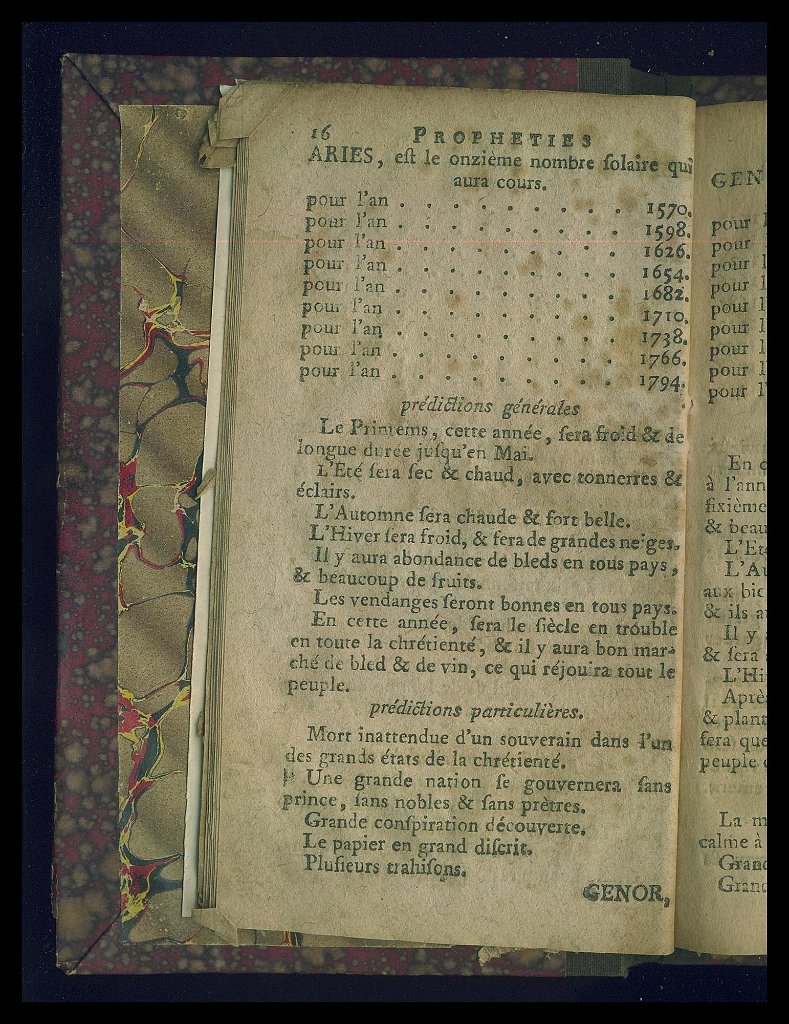 16 PROPHETIES
ARIES, eſt le onzième nombre ſolaire qui
aura cours.
pour l'an . . . . . . . . . 1570.
pour l'an . . . . . . . . . 1598.
pour l'an . . . . . . . . . 1626.
pour l'an . . . . . . . . . 1654.
pour l'an . . . . . . . . . 1682.
pour l'an . . . . . . . . . 1710.
pour l'an . . . . . . . . . 1738.
pour l'an . . . . . . . . . 1766.
pour l'an . . . . . . . . . 1794.
prédictions générales
Le Printems, cette année, ſera froid & de
longue durée juſqu'en Mai.
L'Eté ſera ſec & chaud, avec tonnerres &
éclairs.
L'Automne ſera chaude & fort belle.
L'Hiver ſera froid, & ſera de grandes neiges.
Il y aura abondance de bleds en tous pays,
& beaucoup de fruits.
Les vendanges ſeront bonnes en tous pays.
En cette année, ſera le ſiècle en trouble
en toute la chrétienté, & il y aura bon mar-
ché de bled & de vin, ce qui réjouira tout le
peuple.
prédictions particulières.
Mort inattendue d'un souverain dans l'un
des grands états de la chrétienté.
Une grande nation ſe gouvernera ſans
prince, ſans nobles & ſans prètres.
Grande conſpiration découverte.
Le papier en grand diſcrit.
Pluſieurs trahiſons.
GENOR,
GEN
pour l
pour
pour l
pour l
pour l
pour l
pour l
pour l
pour l'
En
à l'ann
ſixième
& beau
L'Eté
L'Au
aux bie
& ils a
Il y
& ſera
L'Hi
Aprè
& plant
ſera que
peuple
La m
calme à
Grand
Grand